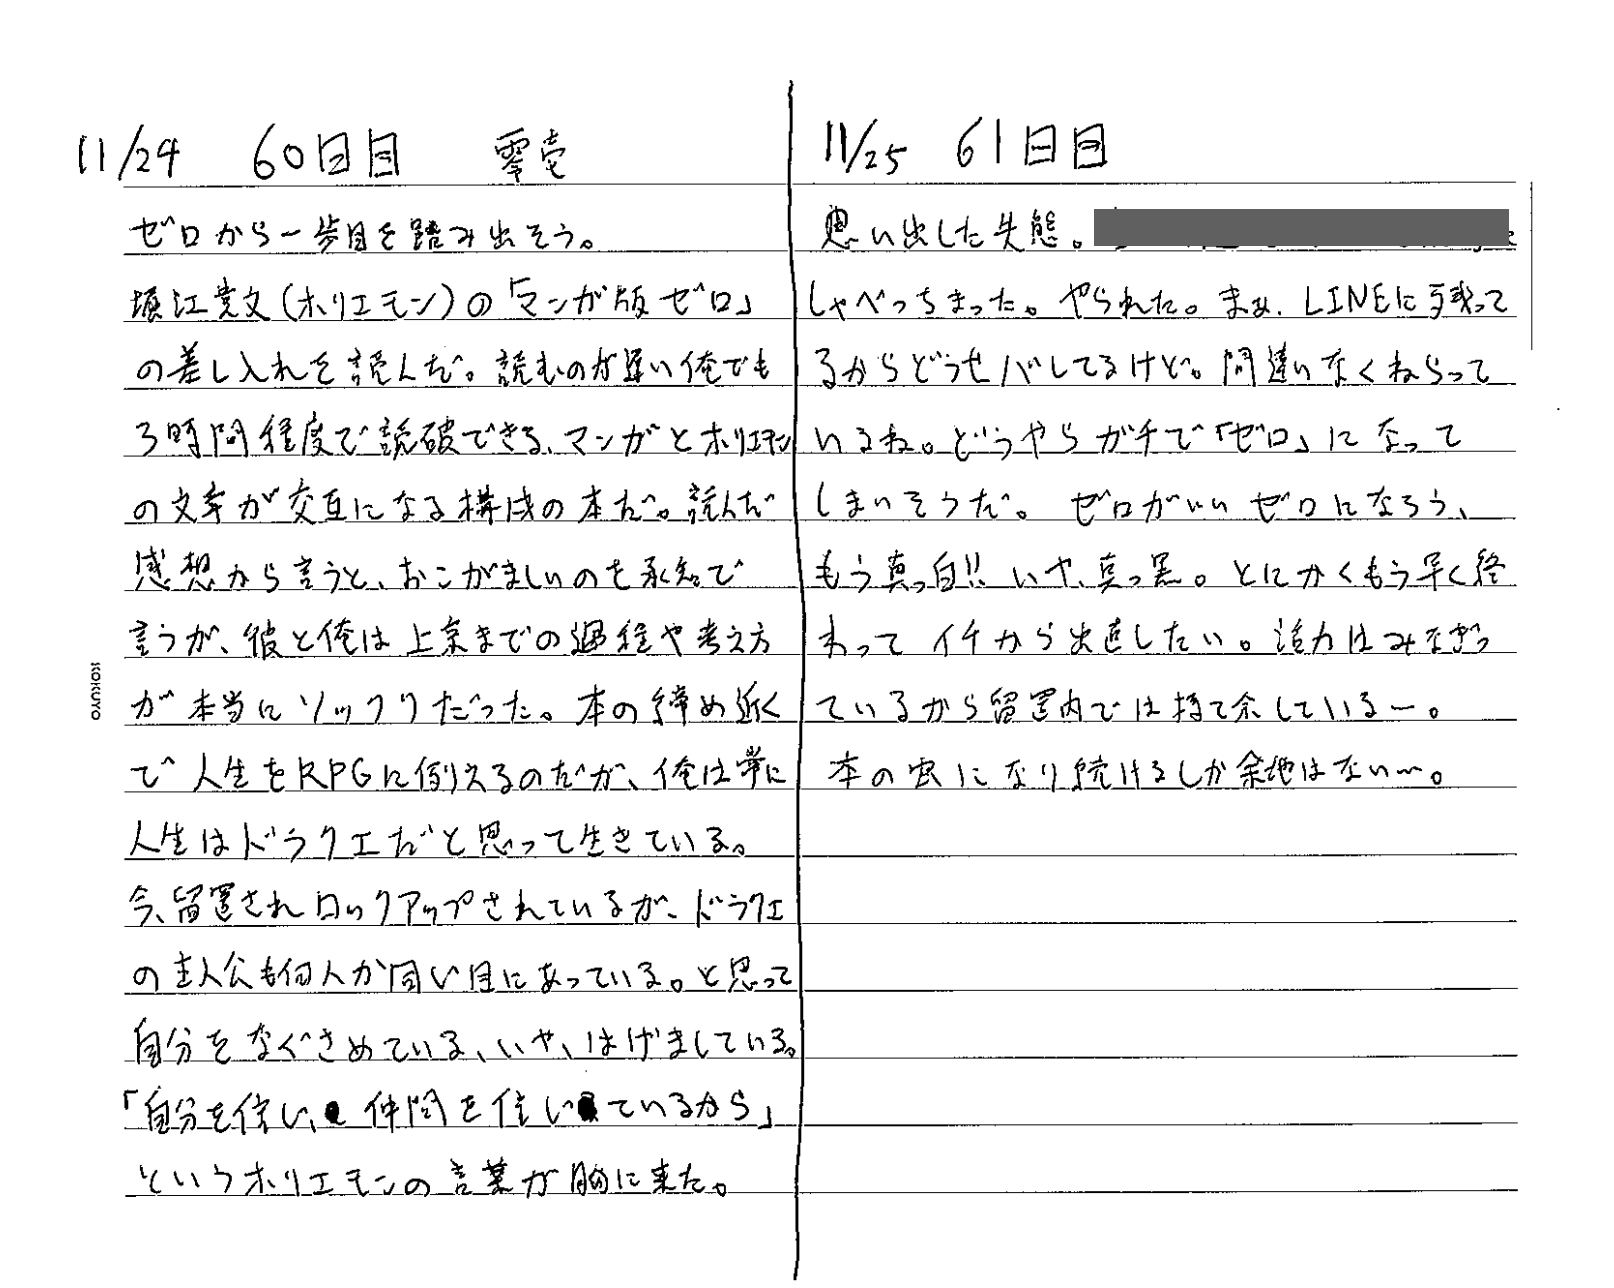 11/24 60日目 零壱
ゼロから一歩目を踏み出そう。
堀江貴文(ホリエモン)の「マンガ版ゼロ」
の差し入れを読んだ。読むのが遅い俺でも
3時間程度で読破できる、マンガとホリエモン
の文章が交互になる構成の本だ。読んだ
感想から言うと、おこがましいのを承知で
言うが、彼と俺は上京までの過程や考え方
が本当にソックリだった。本の締め近く
で人生をRPGに例えるのだが、俺は常に
人生はドラクエだと思って生きている。
今、留置されロックアップされているが、ドラクエ
の主人公も何人か同い目にあっている。と思って
自分をなぐさめている、いや、はげましている。
「自分を信じ、仲間を信じているから」
というホリエモンの言葉が胸に来た。
KOKUYO
11/25 61日目
思い出した失態。
しゃべっちまった。やられた。まぁ、LINEに残って
るからどうせバレてるけど。間違いなくねらって
いるね。どうやらガチで「ゼロ」になって
しまいそうだ。ゼロがいいゼロになろう、
もう真っ白!! いや、真っ黒。とにかくもう早く終
わってイチから出直したい。活力はみなぎっ
ているから留置内では持て余している〜。
本の虫になり続けるしか余地はない〜。